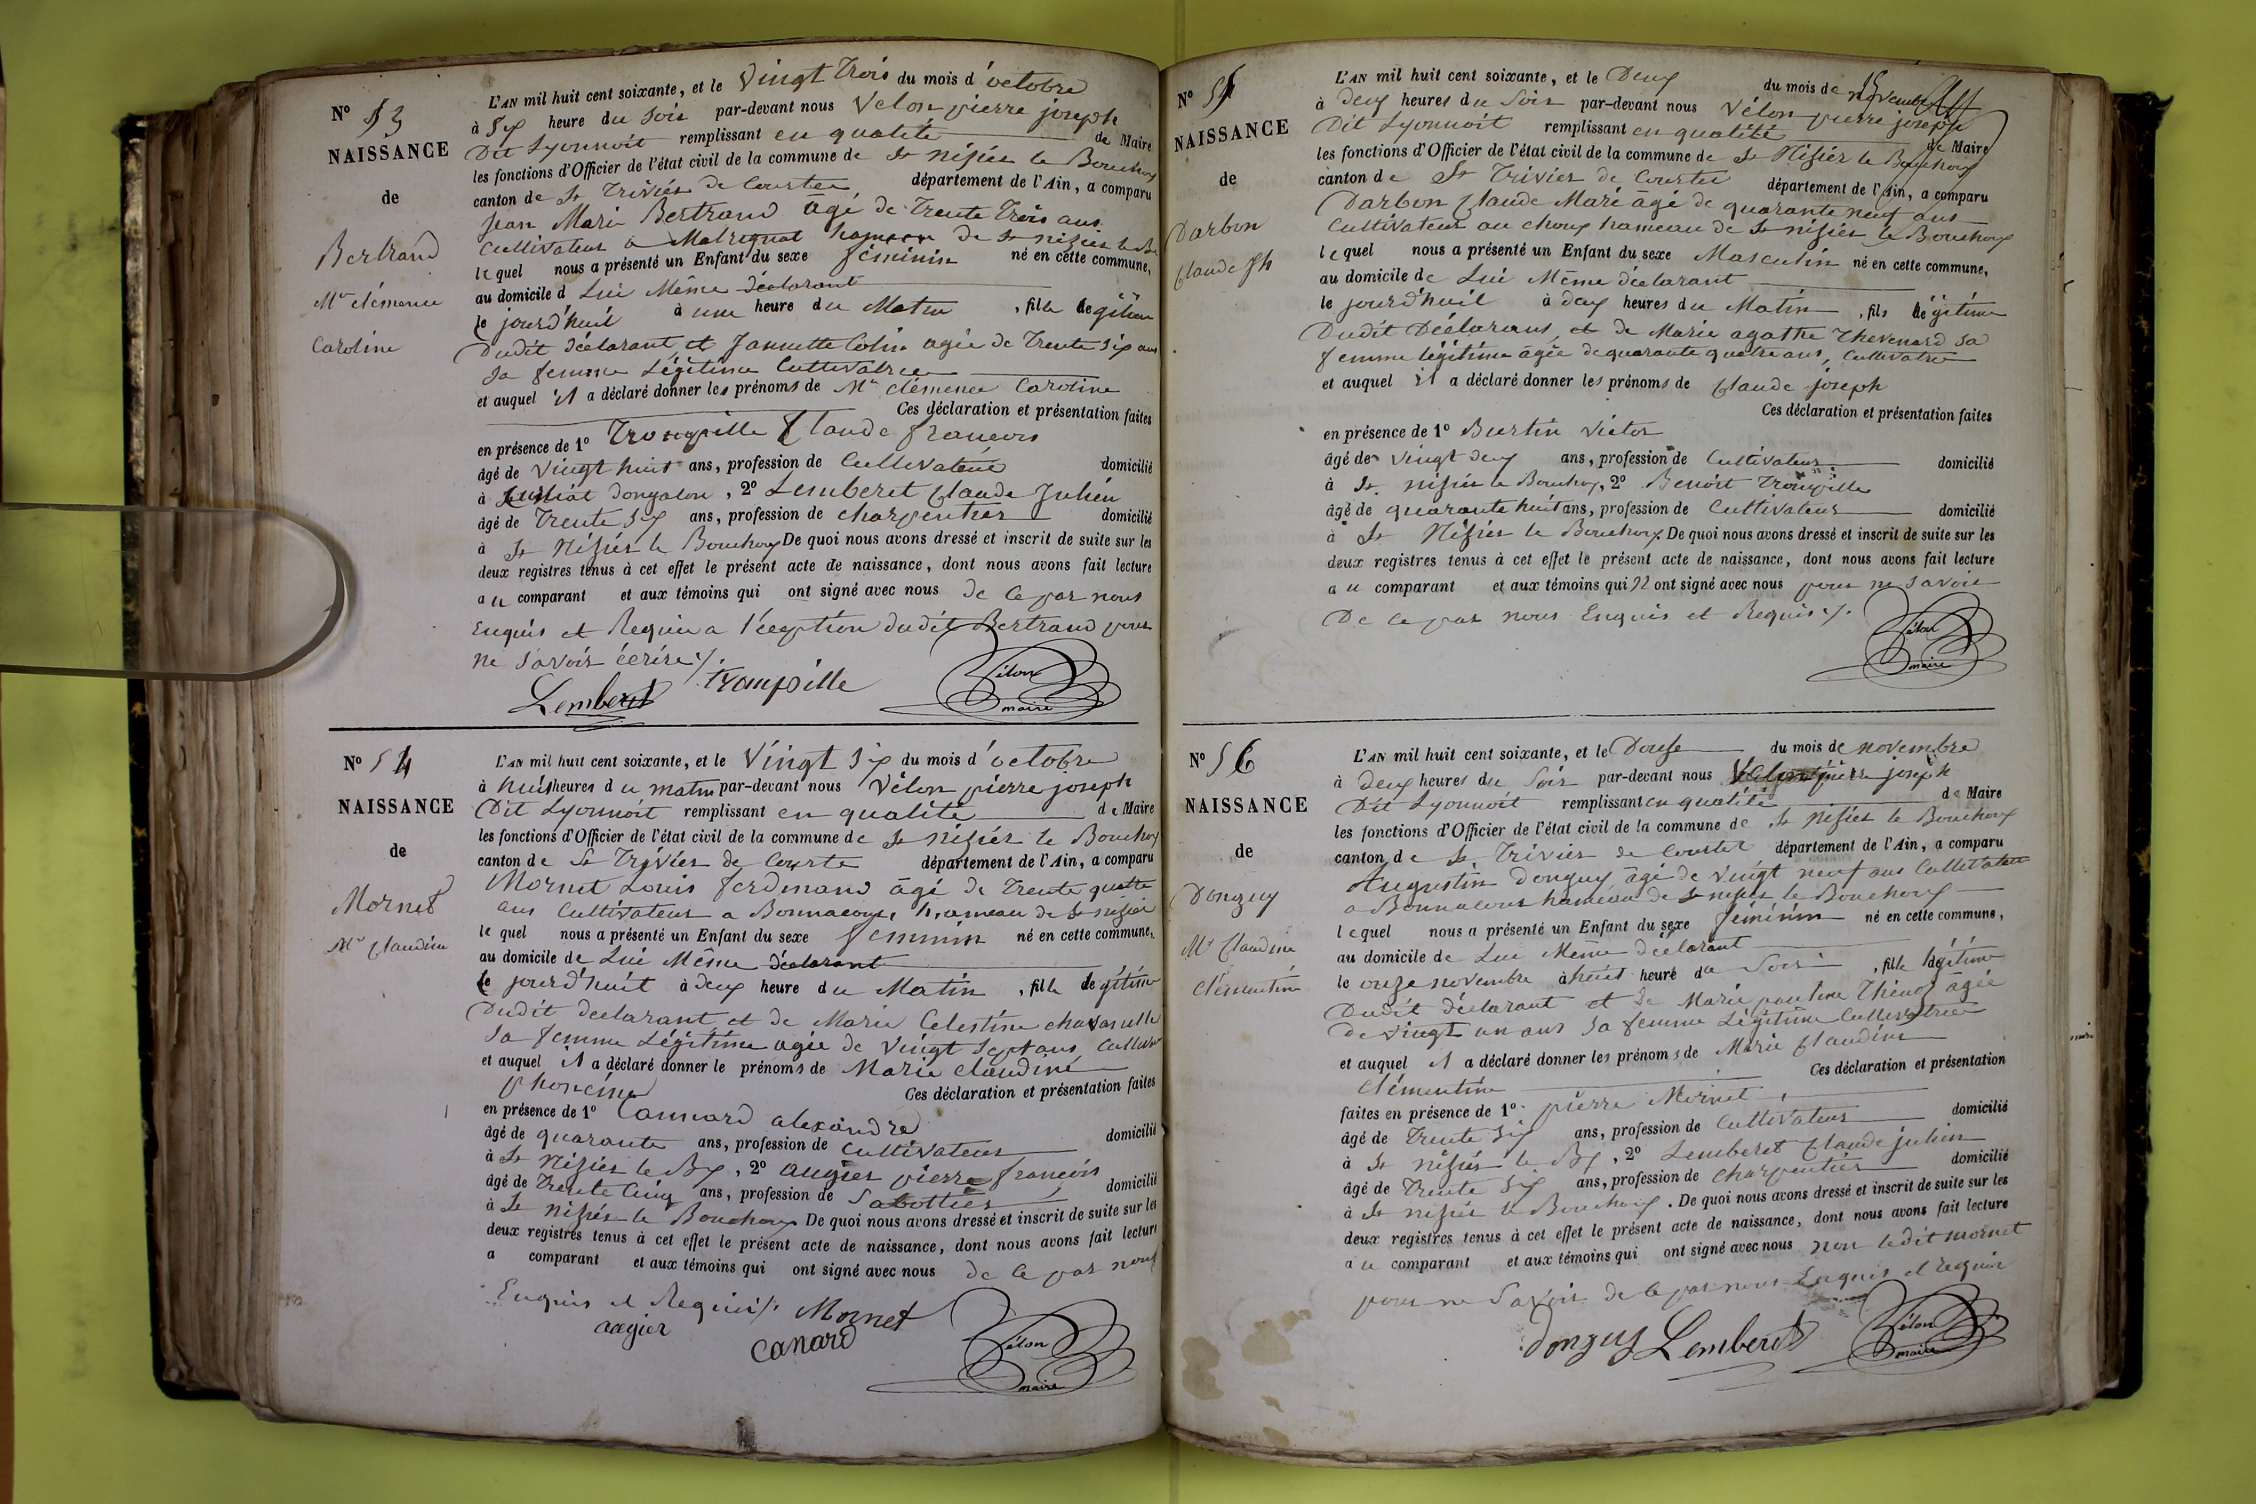 N° 53
NAISSANCE
de
Bertrand
Mie clémence
Caroline
L'AN mil huit cent soixante, et le Vingt Trois du mois d'octobre
à Six heure du Soir par-devant nous Velon pierre joseph
Dit Lyonnoit remplissant en qualité de Maire
les fonctions d'Officier de l'état civil de la commune de St Nisiér le Bouchoux
canton de St Triviér de Courtes, département de l'Ain, a comparu
Jean Marie Bertrand agé de Trente Trois ans
Cultivateur a hameau de St nisiér le Bx
lequel nous a présenté un Enfant du sexe féminin né en cette commune,
au domicile d Lui Même déclarant
le jourd'huil à une heure du Matin, fille légitime
Dudit déclarant et Jannette Colin agée de Trente Six ans
Sa femme Légitime Cultivatrice
et auquel il a déclaré donner les prénoms de Mie clémence Caroline
Ces déclaration et présentation faites
en présence de 1° Trompille Claude francois
âgé de vingt huit ans, profession de Cultivateur domicilié
à dongalon, 2° Lemberet Claude Julién
âgé de Trente Six ans, profession de charpentier domicilié
à St Nisiér le Bouchoux De quoi nous avons dressé et inscrit de suite sur les
deux registres tenus à cet effet le présent acte de naissance, dont nous avons fait lecture
au comparant et aux témoins qui ont signé avec nous de ce par nous
Enquis et Requis a l'éception dudit Bertrand pour
ne Savoir écrire ./.
Lemberet trompille Vélon maire
N° 54
NAISSANCE
de
Mornet
Mie Claudine
L'AN mil huit cent soixante, et le Vingt Six du mois d'octobre
à huit heures du matin par-devant nous Vélon pierre joseph
Dit Lyonnoit remplissant en qualité de Maire
les fonctions d'Officier de l'état civil de la commune de St Nisiér le Bouchoux
canton de St Triviér de Courte département de l'Ain, a comparu
Mornet Louis ferdinand âgé de Trente quatre
ans Cultivateur a Bonnacour, hameau de St nisiér
lequel nous a présenté un Enfant du sexe feminin né en cette commune,
au domicile de Lui Même déclarant
le jourd'huit à deux heure du Matin, fille légitime
Dudit déclarant et de Marie Celestine
Sa femme Légitime agée de vingt Sept ans
et auquel il a déclaré donner le prénoms de Marie claudine
phoncine
Ces déclaration et présentation faites
en présence de 1° Cannard alexandre
âgé de quarante ans, profession de Cultivateur domicilié
à St Nisiér le Bx, 2° augier pierre francois
âgé de Trente Cinq ans, profession de Sabottiér domicilié
à St nisiér le Bouchoux De quoi nous avons dressé et inscrit de suite sur les
deux registres tenus à cet effet le présent acte de naissance, dont nous avons fait lecture
a comparant et aux témoins qui ont signé avec nous de ce par nous
Enquis et Requis ./. Mornet
augier canard Vélon maire
N° 55
NAISSANCE
de
Darbon
Claude Jh
L'AN mil huit cent soixante, et le Deux du mois de novembre
à deux heures du Soir par-devant nous Vélon pierre joseph
Dit Lyonnoit remplissant en qualité de Maire
les fonctions d'Officier de l'état civil de la commune de St Nisiér le Bouchoux
canton de St Triviér de Courtes département de l'Ain, a comparu
Darbon Claude Marie âgé de quarante neuf ans
Cultivateur au choux hameau de St nisiér le Bouchoux
lequel nous a présenté un Enfant du sexe Masculin né en cette commune,
au domicile de Lui Même déclarant
le jourd'huil à deux heures du Matin, fils légitime
Dudit Déclarant, et de Marie agathe Thevenard Sa
femme légitime âgée de quarante quatre ans, Cultivatrice
et auquel il a déclaré donner les prénoms de Claude joseph
Ces déclaration et présentation faites
en présence de 1° Burtin victor
âgé de vingt deux ans, profession de Cultivateur domicilié
à St nisiér le Bouchoux, 2° Benoit Trompille
âgé de quarante huit ans, profession de Cultivateur domicilié
à St Nisiér le Bouchoux De quoi nous avons dressé et inscrit de suite sur les
deux registres tenus à cet effet le présent acte de naissance, dont nous avons fait lecture
au comparant et aux témoins qui n ont signé avec nous pour ne Savoir
De ce par nous Enquis et Requis ./.
Vélon maire
N° 56
NAISSANCE
de
Donguy
Mie Claudine
Clémentine
L'AN mil huit cent soixante, et le Douse du mois de novembre
à deux heures du Soir par-devant nous Vélon pierre joseph
Dit Lyonnoit remplissant en qualité de Maire
les fonctions d'Officier de l'état civil de la commune de St Nisiér le Bouchoux
canton de St Triviér de Courtes département de l'Ain, a comparu
Augustin Donguy âgé de vingt neuf ans Cultivateur
a Bonnacour hameau de St nisiér le Bouchoux
lequel nous a présenté un Enfant du sexe féminin né en cette commune,
au domicile de Lui Même déclarant
le onze novembre à huit heure du Soir, fille légitime
Dudit déclarant et de Marie pauline Thienot âgée
De vingt un ans Sa femme Légitime Cultivatrice
et auquel il a déclaré donner les prénoms de Marie Claudine
Clémentine Ces déclaration et présentation
faites en présence de 1° pierre Mornet,
âgé de Trente Six ans, profession de Cultivateur domicilié
à St nisiér le Bx, 2° Lemberet Claude julien
âgé de Trente Six ans, profession de charpentier domicilié
à St nisiér le Bouchoux. De quoi nous avons dressé et inscrit de suite sur les
deux registres tenus à cet effet le présent acte de naissance, dont nous avons fait lecture
au comparant et aux témoins qui ont signé avec nous non ledit mornet
pour ne Savoir de ce par nous Enquis et requis
donguy Lemberet Vélon maire